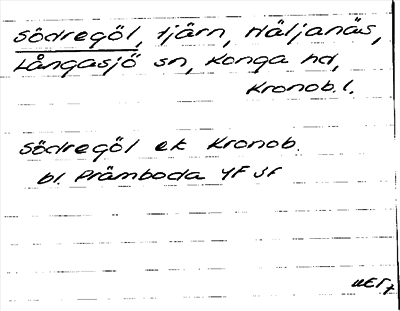 Södregöl, tjärn, Häljanäs,
Långasjö sn, Konga hd,
Kronob. l.
Södregöl ek Kronob.
bl. Prämboda YF JF